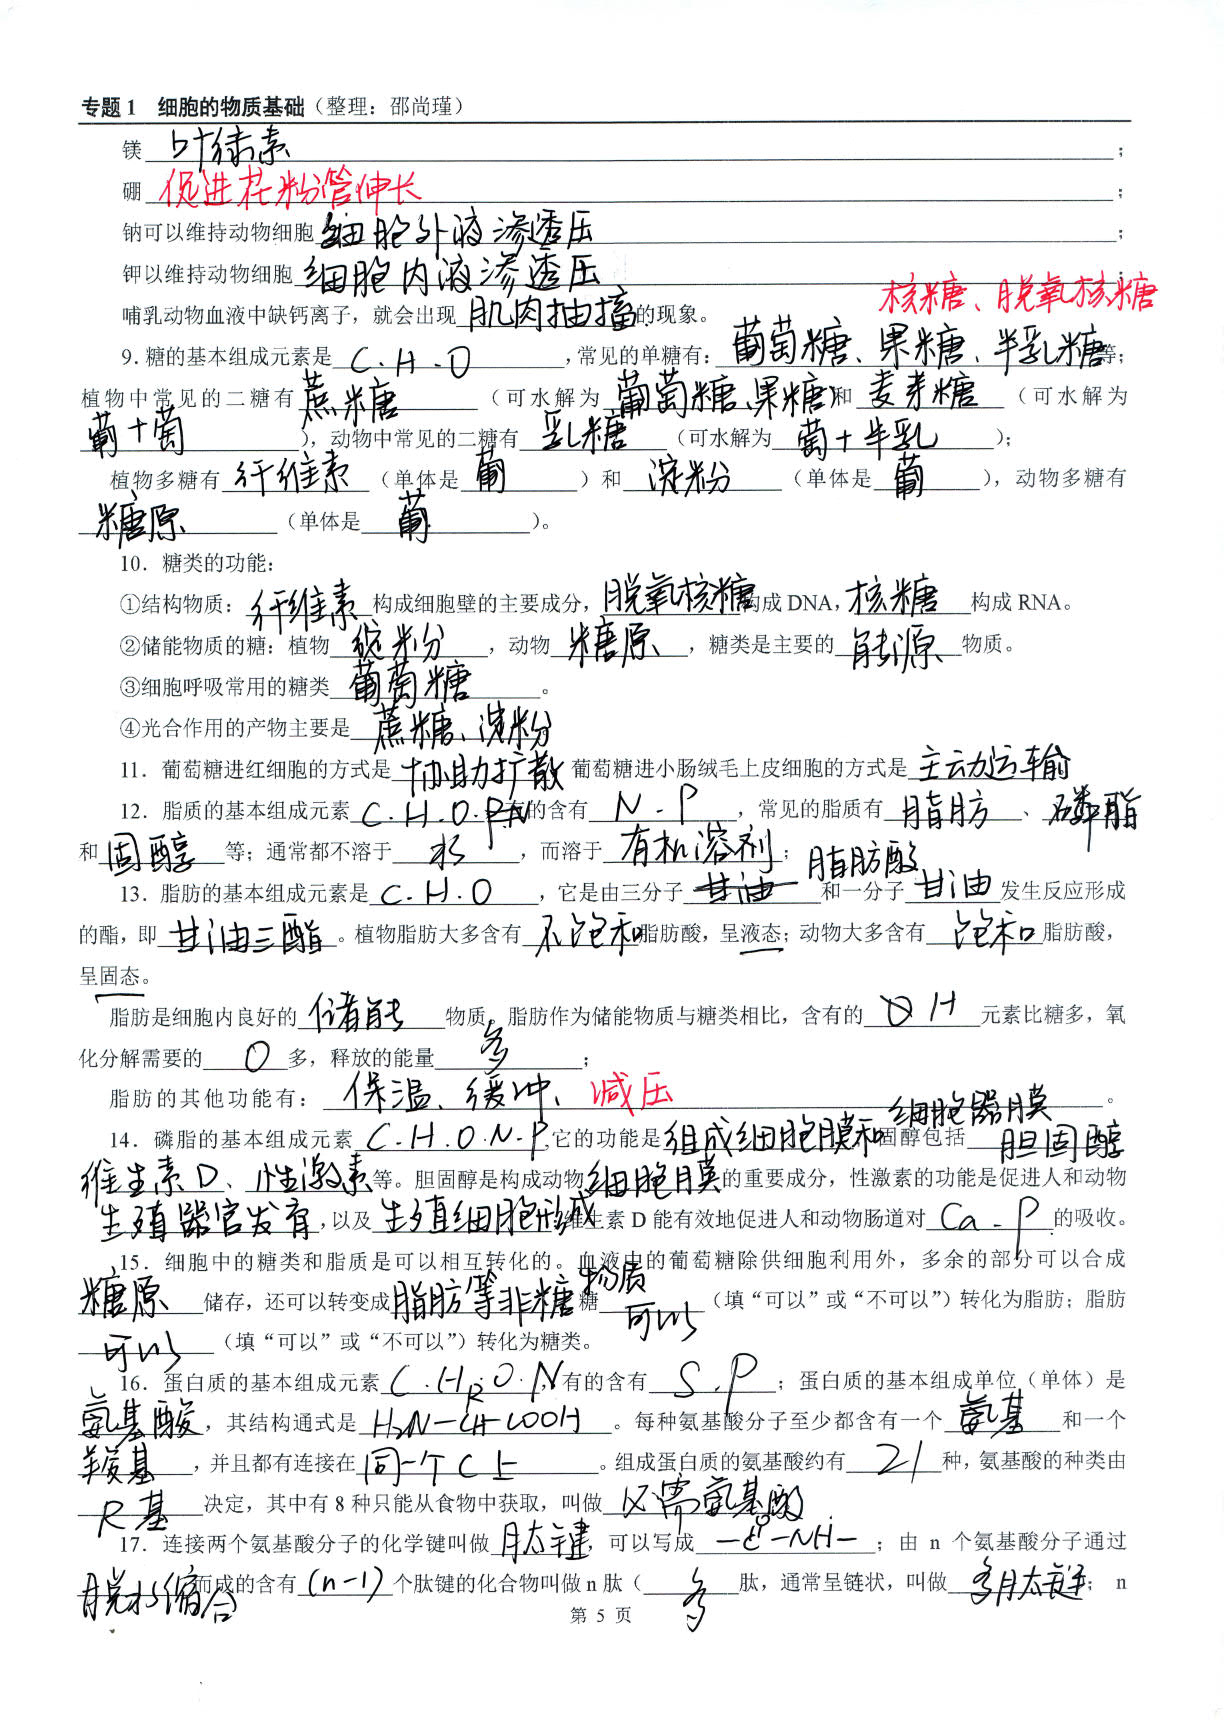 专题1 细胞的物质基础（整理：邵尚瑾）
镁 叶绿素 ；
硼 促进花粉管伸长 ；
钠可以维持动物细胞 细胞外液渗透压 ；
钾以维持动物细胞 细胞内液渗透压 ；
核糖、脱氧核糖
哺乳动物血液中缺钙离子，就会出现 肌肉抽搐 的现象。
9.糖的基本组成元素是 C.H.O ，常见的单糖有：葡萄糖、果糖、半乳糖 等；
植物中常见的二糖有 蔗糖 （可水解为 葡萄糖、果糖）和 麦芽糖 （可水解为
葡+萄 ），动物中常见的二糖有 乳糖 （可水解为 葡+半乳 ）；
植物多糖有 纤维素 （单体是 葡 ）和 淀粉 （单体是 葡 ），动物多糖有
糖原 （单体是 葡 ）。
10．糖类的功能：
①结构物质：纤维素 构成细胞壁的主要成分，脱氧核糖 构成DNA，核糖 构成RNA。
②储能物质的糖：植物 淀粉 ，动物 糖原 ，糖类是主要的 能源 物质。
③细胞呼吸常用的糖类 葡萄糖 。
④光合作用的产物主要是 蔗糖、淀粉
11．葡萄糖进红细胞的方式是 协助扩散 葡萄糖进小肠绒毛上皮细胞的方式是 主动运输
12．脂质的基本组成元素 C.H.O.P.N 有的含有 N.P ，常见的脂质有 脂肪 、磷脂
和 固醇 等；通常都不溶于 水 ，而溶于 有机溶剂 ；
脂肪酸
13．脂肪的基本组成元素是 C.H.O ，它是由三分子 甘油 和一分子 甘油 发生反应形成
的酯，即 甘油三酯 。植物脂肪大多含有 不饱和 脂肪酸，呈液态；动物大多含有 饱和 脂肪酸，
呈固态。
脂肪是细胞内良好的 储能 物质，脂肪作为储能物质与糖类相比，含有的 H 元素比糖多，氧
化分解需要的 O 多，释放的能量 多 ；
脂肪的其他功能有： 保温、缓冲、减压 。
细胞器膜
14．磷脂的基本组成元素 C.H.O.N.P ，它的功能是 组成细胞膜和 固醇包括 胆固醇
维生素D、性激素 等。胆固醇是构成动物 细胞膜 的重要成分，性激素的功能是促进人和动物
生殖器官发育 ，以及 生殖细胞形成 维生素D能有效地促进人和动物肠道对 Ca.P 的吸收。
15．细胞中的糖类和脂质是可以相互转化的。血液中的葡萄糖除供细胞利用外，多余的部分可以合成
糖原 储存，还可以转变成 脂肪等非糖物质 糖 可以 （填“可以”或“不可以”）转化为脂肪；脂肪
可以 （填“可以”或“不可以”）转化为糖类。
16．蛋白质的基本组成元素 C.H.O.N ，有的含有 S.P ；蛋白质的基本组成单位（单体）是
R
氨基酸 ，其结构通式是 H₂N-CH-COOH 。每种氨基酸分子至少都含有一个 氨基 和一个
羧基 ，并且都有连接在 同一个C上 。组成蛋白质的氨基酸约有 21 种，氨基酸的种类由
R基 决定，其中有8种只能从食物中获取，叫做 必需氨基酸
17．连接两个氨基酸分子的化学键叫做 肽键 ，可以写成 -C-NH- ；由 n 个氨基酸分子通过
脱水缩合 而成的含有 (n-1) 个肽键的化合物叫做n肽（ 多 肽，通常呈链状，叫做 多肽链 ； n
第 5 页